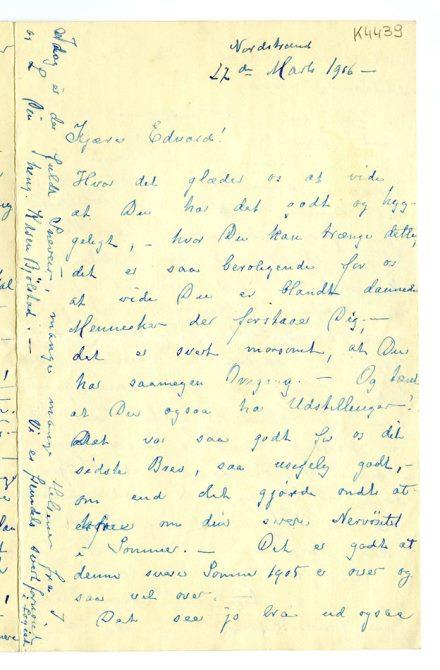 K4439
Nordstrand
27de Marts 1906 —
Kjære Edvard!
Hvor det glæder os at vide
at Du har det godt og hyg-
geligt, – hvor Du kan trænge dette,
det er saa beroligende for os
at vide Du er blandt dannede
Mennesker der forstaaer Dig, –
det er svært morsomt, at Du
har saamegen Omgang. — Og tænk
at Du ogsaa har Udstillinger!
Det var saa godt for os dit
sidste Brev, saa usigelig godt, –
om end det gjorde ondt at
erfare om din svære Nervösitet
i Sommer. — Det er godt at
denne svære Sommer 1905 er over og
saa vel over. —
Det seer jo bra ud ogsaa
Idag er der fuldt Sneveir, mange mange Hilsener fra I
og L Din heng.
Vi er fremdeles svært fornøiet